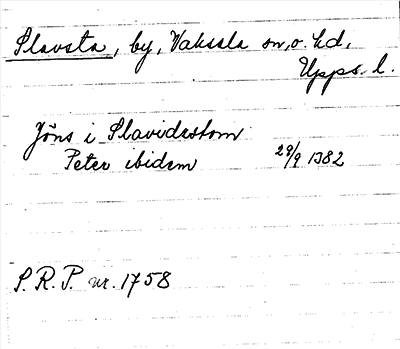 Slavsta, by, Vaksala sn, o. hd,
Upps. l.
Jöns i Slavidastom
Peter ibidem 29/9 1382
S. R. P. nr. 1758